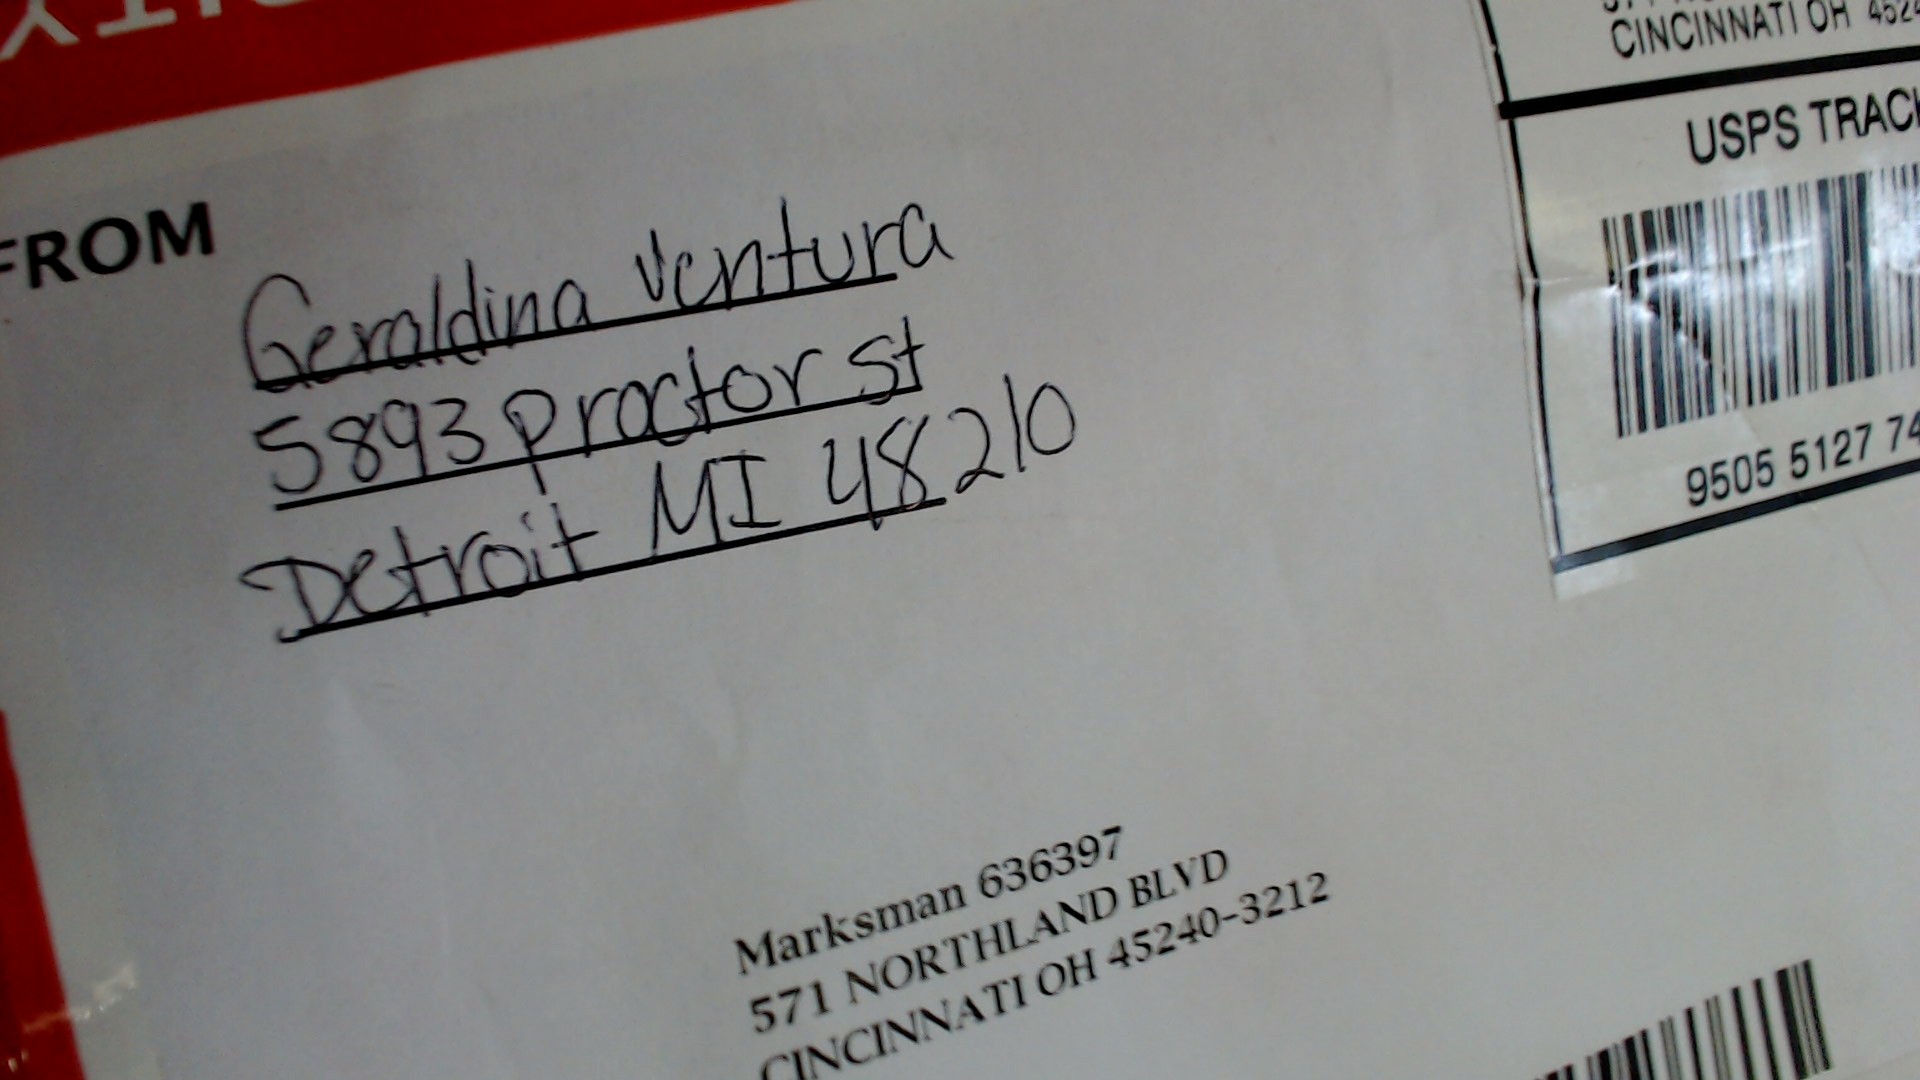 FROM
Geraldina Ventura
5893 proctor st
Detroit MI 48210
CINCINNATI OH
USPS
9505 5127
Marksman 636397
571 NORTHLAND BLVD
CINCINNATI OH 45240-3212